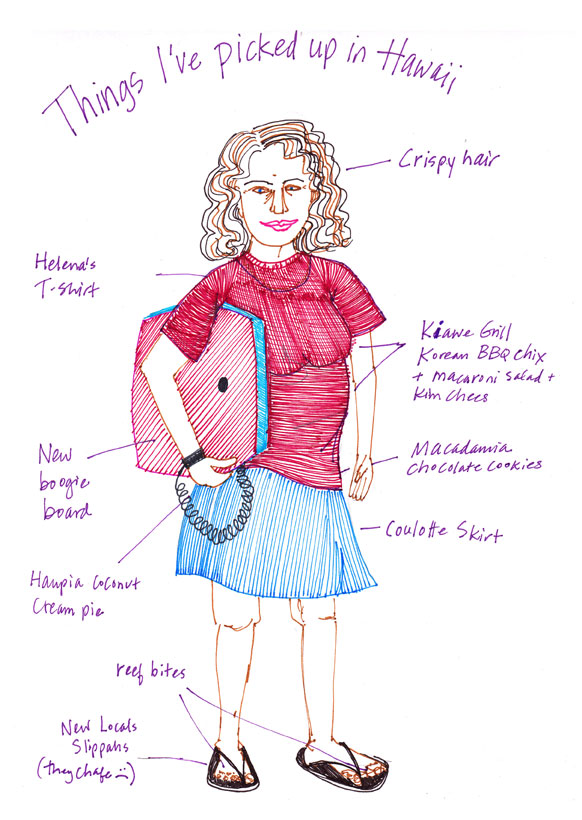 Things I've picked up in Hawaii
Crispy hair
Helena's
T-shirt
Kiawe Grill
Korean BBQ chix
+ macaroni salad +
Kim Chees
New
boogie
board
Macadamia
chocolate cookies
Coulotte Skirt
Haupia Coconut
Cream pie
reef bites
New Locals
Slippahs
(they chafe :()